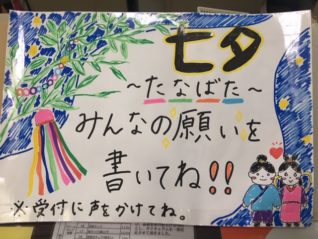 七夕
～たなばた～
みんなの願いを
書いてね!!
※受付に声をかけてね。